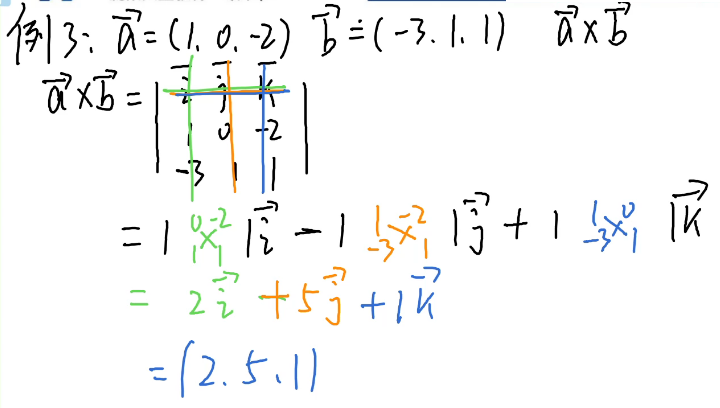 例3: a⃗=(1, 0, -2) b⃗=(-3, 1, 1) a⃗×b⃗
a⃗×b⃗ = | i⃗ j⃗ k⃗
1 0 -2
-3 1 1 |
= | 0 -2 | i⃗ - | 1 -2 | j⃗ + | 1 0 | k⃗
1 1 -3 1 -3 1
= 2i⃗ + 5j⃗ + 1k⃗
= (2, 5, 1)